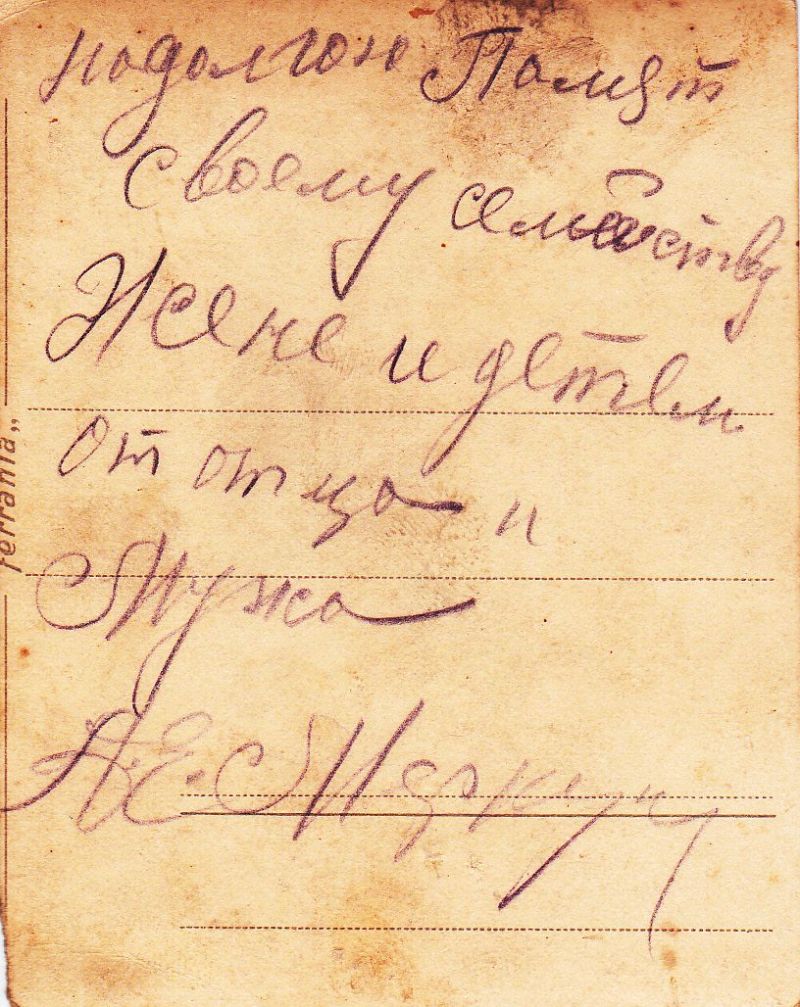 надолгою Помят
своему семейству
Жене и детем
от отца и
Мужа
А.Е.
ferrania„